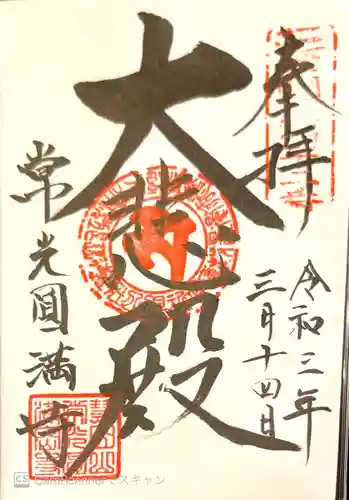 奉拝
令和三年
三月十四日
大悲殿
常光圓満寺
CS CamScannerでスキャン